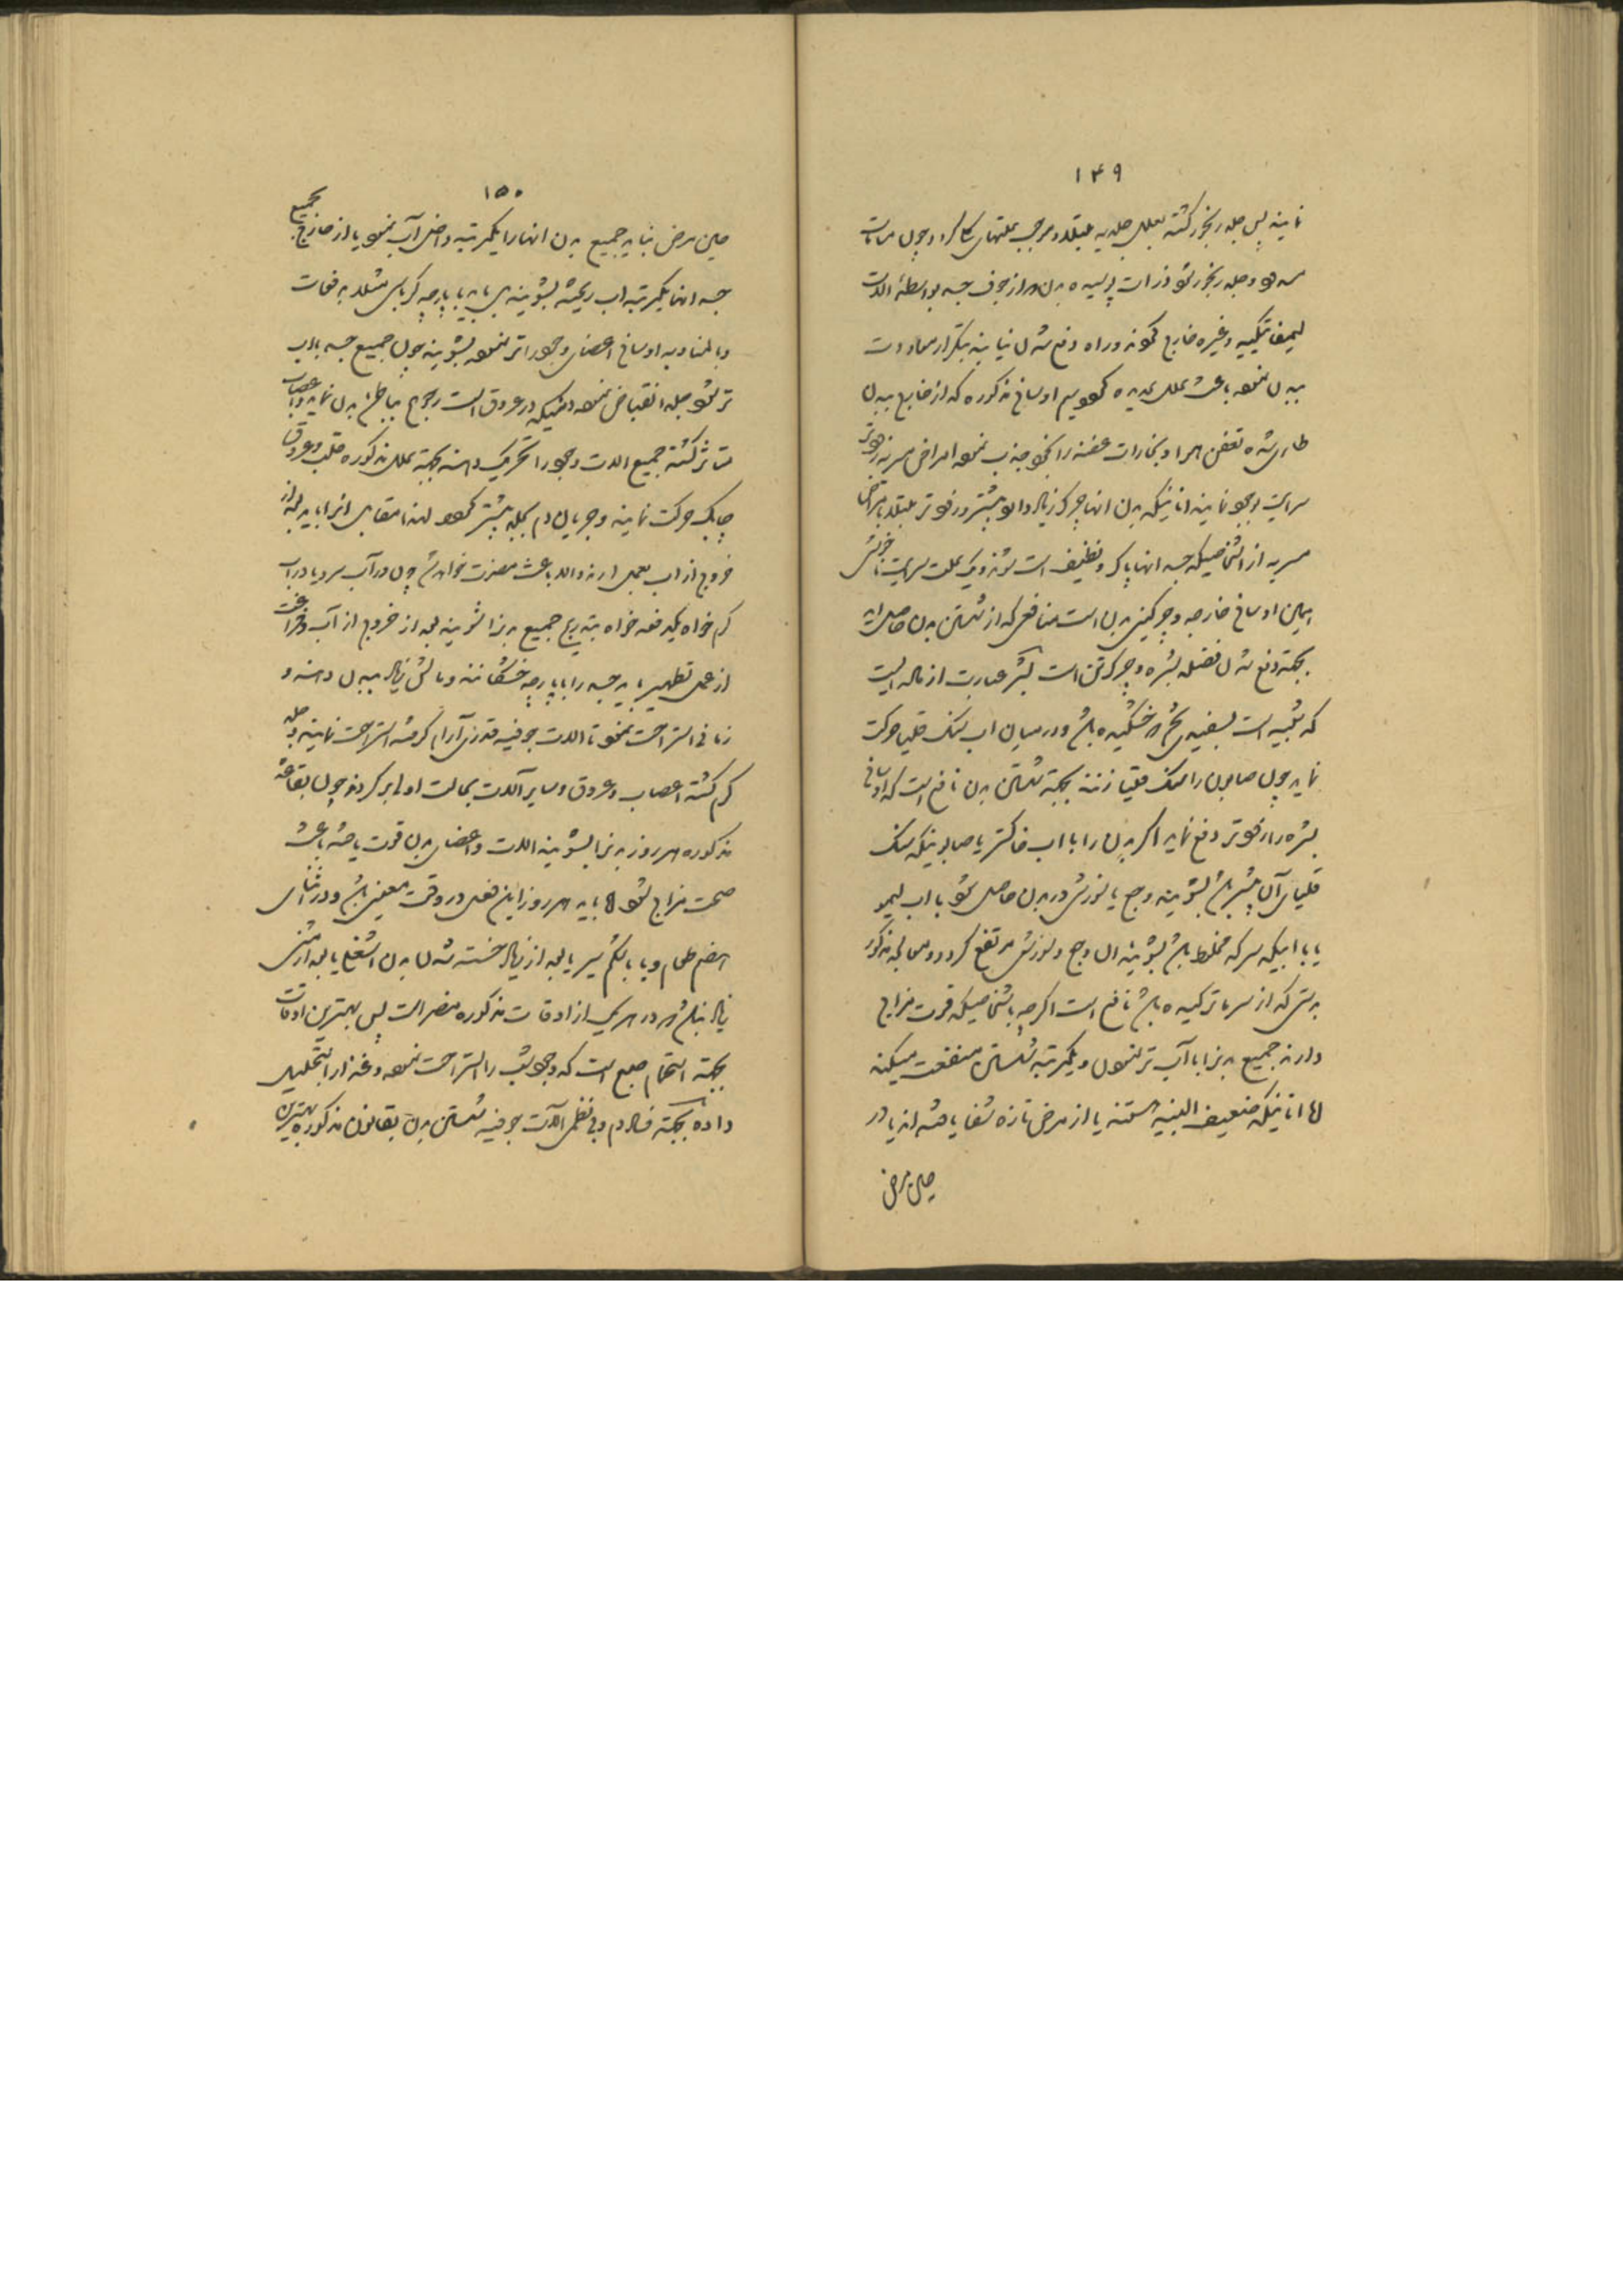 ۱۴۹
نمایند پس جلد رنجور گشته بعلل جلدیه مبتلا و موجب علتهای کل گردد و چون مسامات
مسدود و جلد رنجور شود ذرات پوسیده بدن که از جوف جسد بواسطهٔ آلات
لیمفاتیکیه و غیره خارج گردند و راه دفع شدن نیابند بتکرار معاودت
ببدن نموده باعث علل عدیده گردد و سم اوساخ مذکوره که از خارج ببدن
طاری شده تعفن هوا و بخارات عفنه را بخود جذب نموده امراض مسریه زودتر
سرایت بوجود نمایند آنانیکه بدن آنها چرک زیاد دارد بیشتر و زودتر مبتلا بامراض
مسریه از اشخاصیکه جسد آنها پاک و نظیف است شوند و یک علت سرایت ناخوشی
همین اوساخ خارجه و چرکینی بدن است منافعی که از شستن بدن حاصل آید
بجهته دفع شدن فضله بشره و چرک تن است بشره عبارت از ماده ایست
که شبیه است بسفیده تخم که خشکیده باشد و در میان آب سنگ قلیا حرکت
نماید چون صابون را سنگ قلیا زنند بجهته شستن بدن نافع است که اوساخ
بشره را زودتر دفع نماید اگر بدن را با آب خاکستر یا صابونیکه سنگ
قلیای آن بیشتر باشد بشویند وجع یا سوزش در بدن حاصل شود با آب لیمو
یا با آبیکه سرکه مخلوط باشد بشویند آن وجع و سوزش مرتفع گردد و معالجه مذکور
بدستی که از سرما ترکیده باشد نافع است اگرچه باشخاصیکه قوت مزاج
دارند جمیع بدن را با آب تر نمودن و یکمرتبه شستن منفعت میکند
اما آنانیکه ضعیف البنیه هستند یا از مرض تازه شفا یافته اند یا در
حین مرض
۱۵۰
حین مرض نباید جمیع بدن آنها را یکمرتبه داخل آب نمود یا از خارج بجمیع
جسد آنها یکمرتبه آب ریخته بشویند بل باید با پارچه کرباس مثلا بدفعات
و بالمناوبه اوساخ اعضای وجود را تر نموده بشویند چون جمیع جسد بآب
تر شود جلد انقباض نموده دمیکه در عروق است رجوع بباطن بدن نماید و اعصاب
متاثر گشته جمیع آلات وجود را تحریک دهند بجهته علل مذکوره قلب و عروق
چابک حرکت نمایند و جریان دم بجلد بیشتر گردد لهذا متقابل آنرا باید بعد از
خروج از آب بعمل آرند والا باعث مضرت خواهد شد چون در آب سرد یا در آب
گرم خواه یکدفعه خواه بتدریج جمیع بدن را شویند بعد از خروج از آب و فراغت
از عمل تطهیر باید جسد را با پارچه خشکانند و مالش زیاد ببدن دهند و
زمانی استراحت نمود تا آلات جوفیه قدری آرام گرفته استراحت نمایند و جلد
گرم گشته اعصاب و عروق و سایر آلات بحالت اولی برگردند چون بقاعدهٔ
مذکوره هر روز بدن را بشویند آلات و اعضای بدن قوت یافته باعث
صحت مزاج شود اما باید هر روز این فعل در وقت معینی باشد و در اثنای
هضم طعام و یا با شکم سیر یا بعد از زیاد خسته شدن بدن از شغل یا بعد از مشی
زیاد نباشد که در هر یک از اوقات مذکوره مضر است پس بهترین اوقات
بجهته استحمام صبح است که وجود شب را استراحت نموده و غذا را بتحلیل
داده بجهته فساد دم و بی نظمی آلات جوفیه شستن بدن بقانون مذکوره بهترین